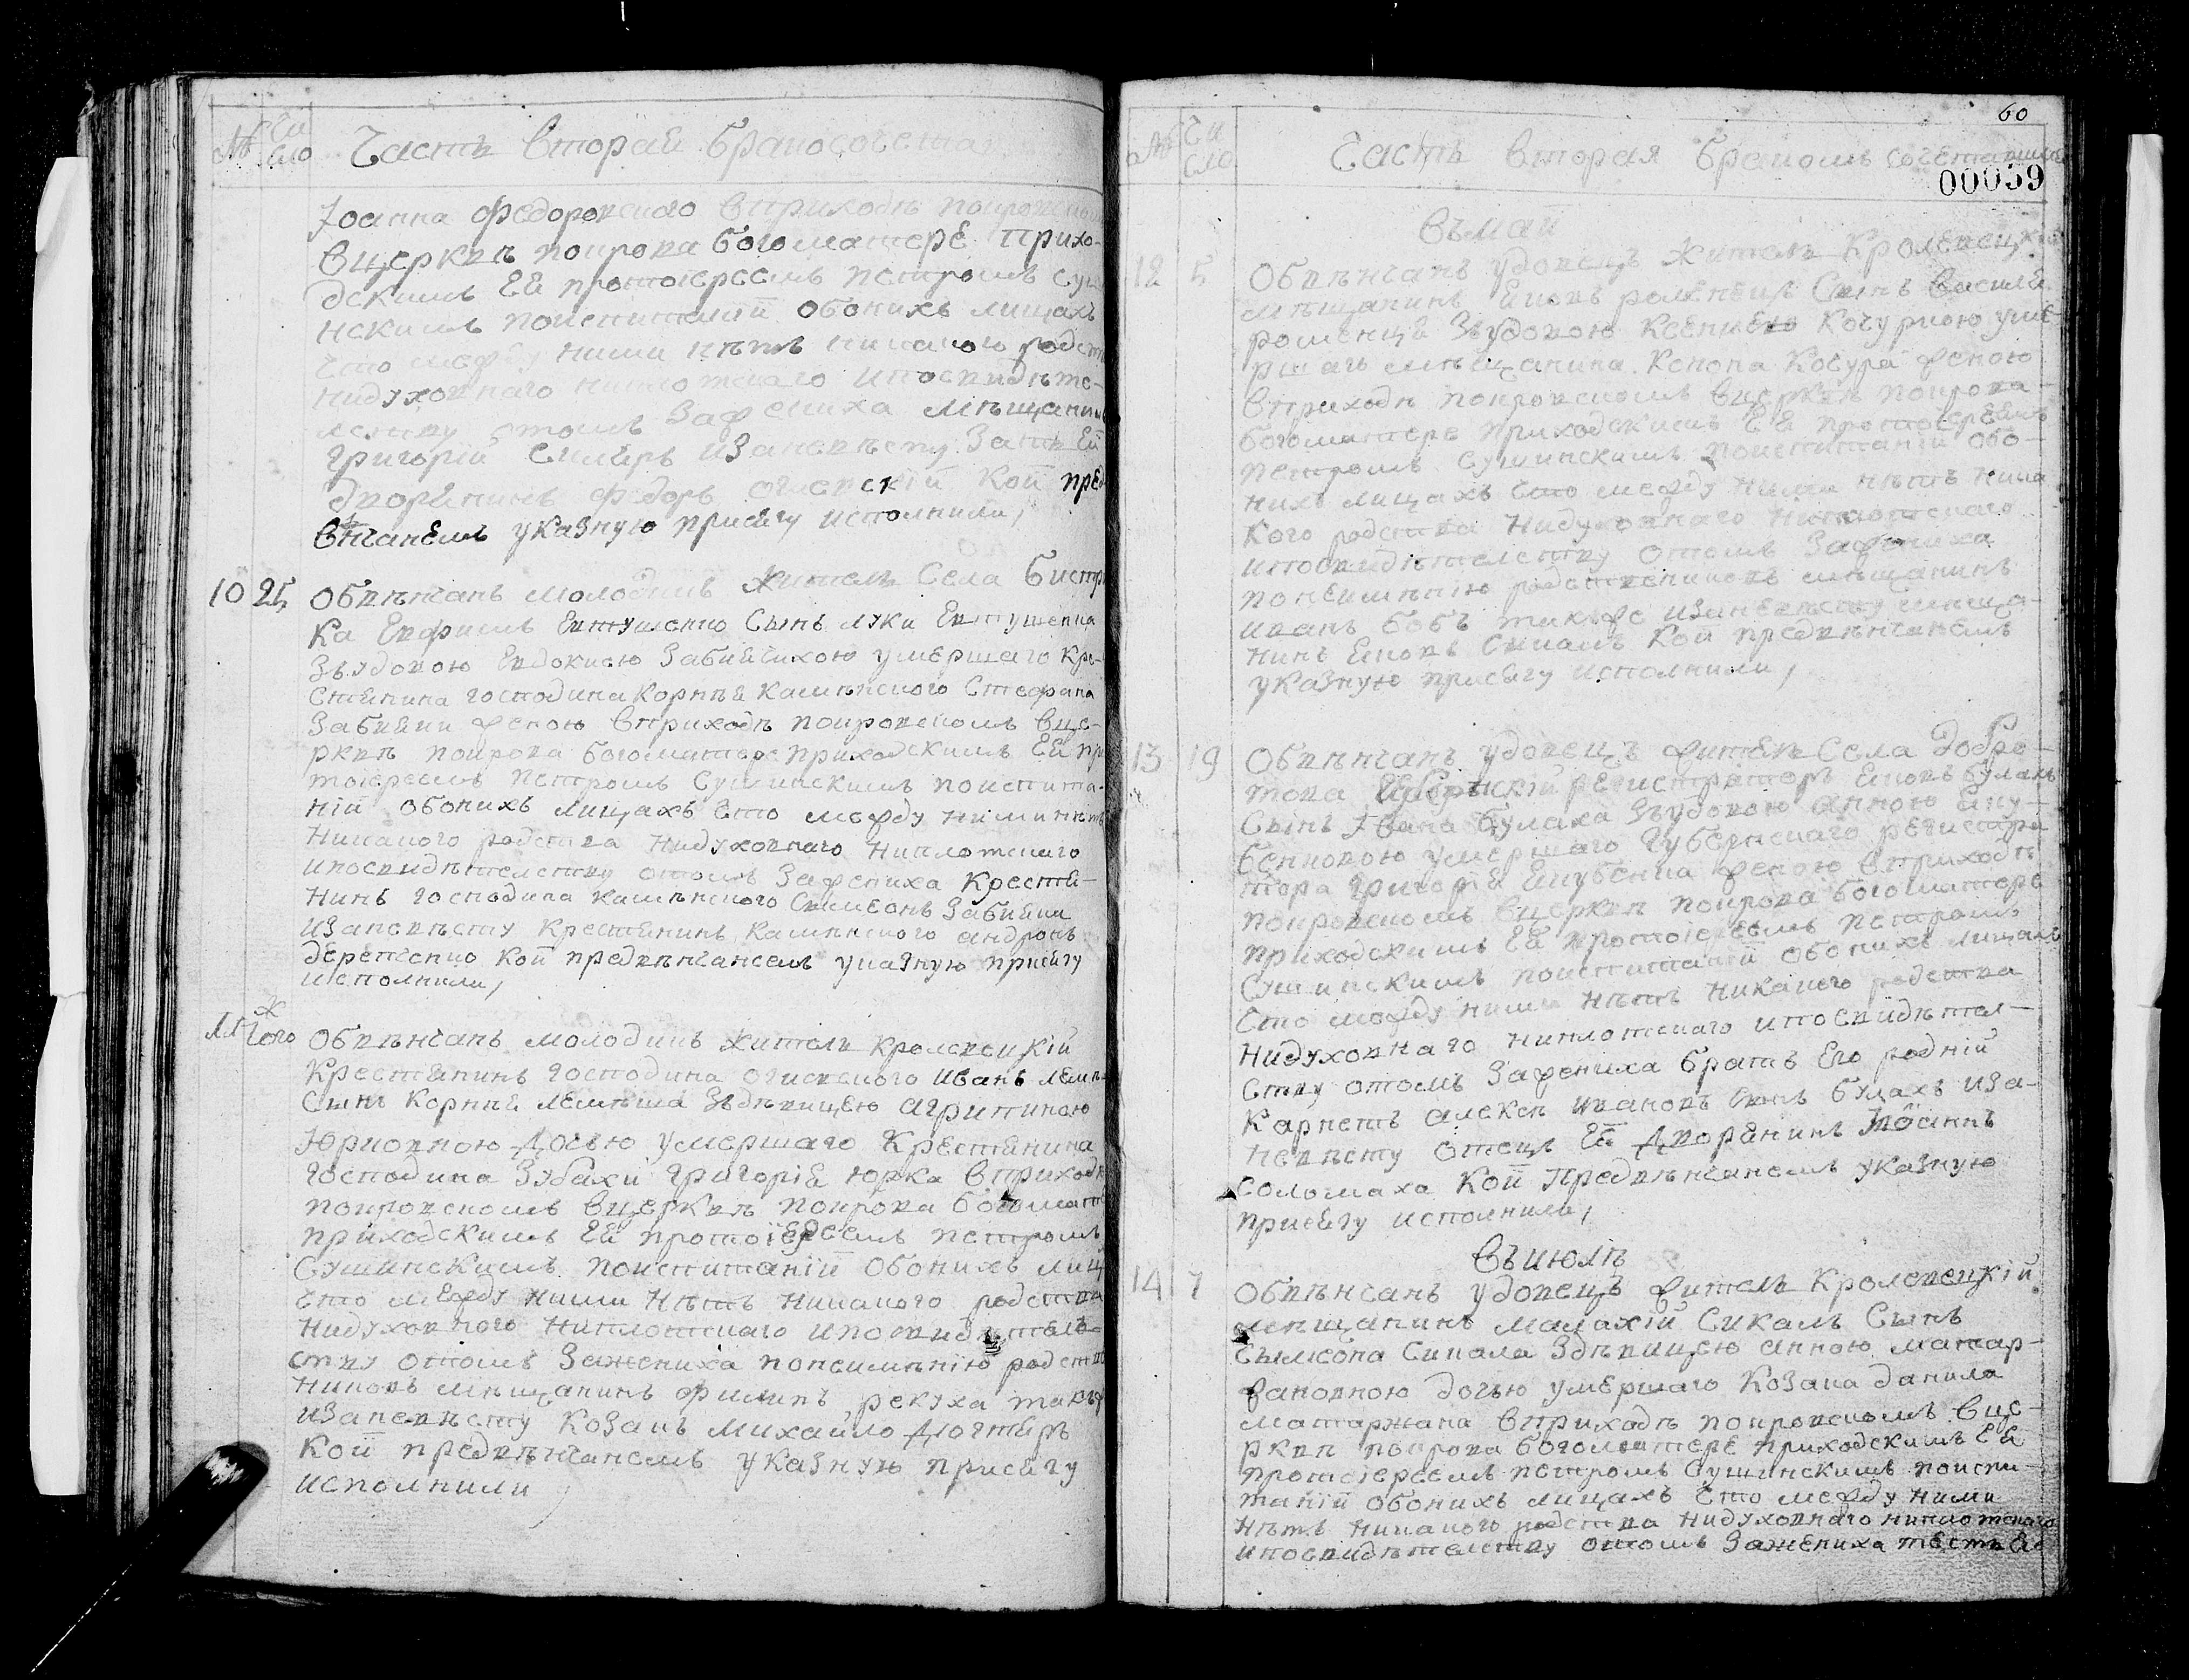 № Чи
сло Часть вторая бракосочета
Іоанна Федоровского вприходѣ покровском
вцерквѣ покрова богоматере прихо-
дскимъ Ея протоіереемъ петромъ Суш
нскимъ поиспитаніи обоихъ лицахъ
Что между ними нѣтъ никакого родст
нидуховнаго ниплотскаго ипосвидѣте-
лству отомъ Зажениха мѣщанинъ
григорій изаневѣсту Зять Ея
дворянинъ Федоръ огиевскій кои пред
вѣнчанемъ указную присягу исполнили,
10 25 Обвѣнчанъ молодикъ житель Села бистри
ка Евфимъ Евтушенко Сынъ луки Евтушенка
Звудовою Евдокиею Забиячихою умершаго кре-
стянина господина корнѣя каменского Стефана
Забияки женою вприходѣ покровскомъ вце-
рквѣ покрова богоматере приходскимъ Ея пр
тоіереемъ петромъ Сушинскимъ поиспита-
ніи обоихъ лицахъ Что между ними нѣтъ
Никакого родства нидуховнаго ниплотскаго
ипосвидѣтелству отомъ Зажениха крестя-
нинъ господина каменского Симеонъ Забияка
изаневѣсту крестянинъ каменского андронъ
кои предвѣнчанемъ указную присягу
исполнили,
11 Того ж Обвѣнчанъ молодикъ житель кролевецкій
крестянинъ господина огиевского иванъ леме
Сынъ корнѣя лемеша Здѣвицею агрипиною
Юрковною дочью умершаго крестянина
господина Зубахи григорія юрка вприходѣ
покровскомъ вцерквѣ покрова богомате
приходскимъ Ея протоіереемъ петромъ
Сушинскимъ поиспитаніи обоихъ лиц
Что между ними нѣтъ никакого родства
нидуховного ниплотскаго ипосвидѣтель-
ству отомъ Зажениха понеимѣнію родстве
никовъ мѣщанинъ филипъ рекуха такъже
изаневѣсту козакъ михайло дюгтяръ
кои предвѣнчанемъ указную присягу
исполнили
60
№ Чи
сло Часть вторая бракомъ сочетавшихся
00059
въмаѣ
12 5 Обвѣнчанъ удовецъ житель кролевецкій
мѣщанинъ яковъ Сынъ василя
Звудовою ксениею кочурною уме-
ршагъ мѣщанина конона кочура женою
вприходѣ покровскомъ вцерквѣ покрова
богоматере приходскимъ Ея протоіереемъ
петромъ Сушинскимъ поиспитаніи обо-
ихъ лицахъ Что между ними нѣтъ ника
кого родства нидуховнаго ниплотскаго
ипосвидѣтелству отомъ Зажениха
понеимѣнію родствениковъ мѣщанинъ
иванъ бобъ такъже изаневѣсту мѣща-
нинъ яковъ кои предвѣнчанемъ
указную присягу исполнили,
13 19 Обвѣнчанъ удовецъ житель Села добро-
това губернскій регистраторъ яковъ булахъ
Сынъ іоана булаха Звудовою анною яку-
бенковою умершаго губернскаго регистра
тора григорія якубенка женою вприходѣ
покровскомъ вцерквѣ покрова богоматере
приходскимъ Ея протоіереемъ петромъ
Сушинскимъ поиспитаніи обоихъ лицахъ
Что между ними нѣтъ никакого родства
нидуховнаго ниплотскаго ипосвидѣтел-
ству отомъ Зажениха братъ Его родній
алексѣ ивановъ Синъ булахъ иза-
невѣсту отецъ Ея дворянинъ іоаннъ
Соломаха кои предвѣнчанемъ указную
присягу исполнили,
въиюлѣ
14 7 Обвѣнчанъ удовецъ житель кролевецкій
мѣщанинъ малахій Сикалъ Сынъ
Сымеона Сикала Здѣвицею анною матар-
жановною дочью умершаго козака данила
матаржана вприходѣ покровскомъ вце-
рквѣ покрова богоматере приходскимъ Ея
протоіереемъ петромъ Сушинскимъ поиспи-
таніи обоихъ лицахъ Что между ними
нѣтъ никакого родства нидуховнаго ниплотскаго
ипосвидѣтелству отомъ Зажениха тесть Его